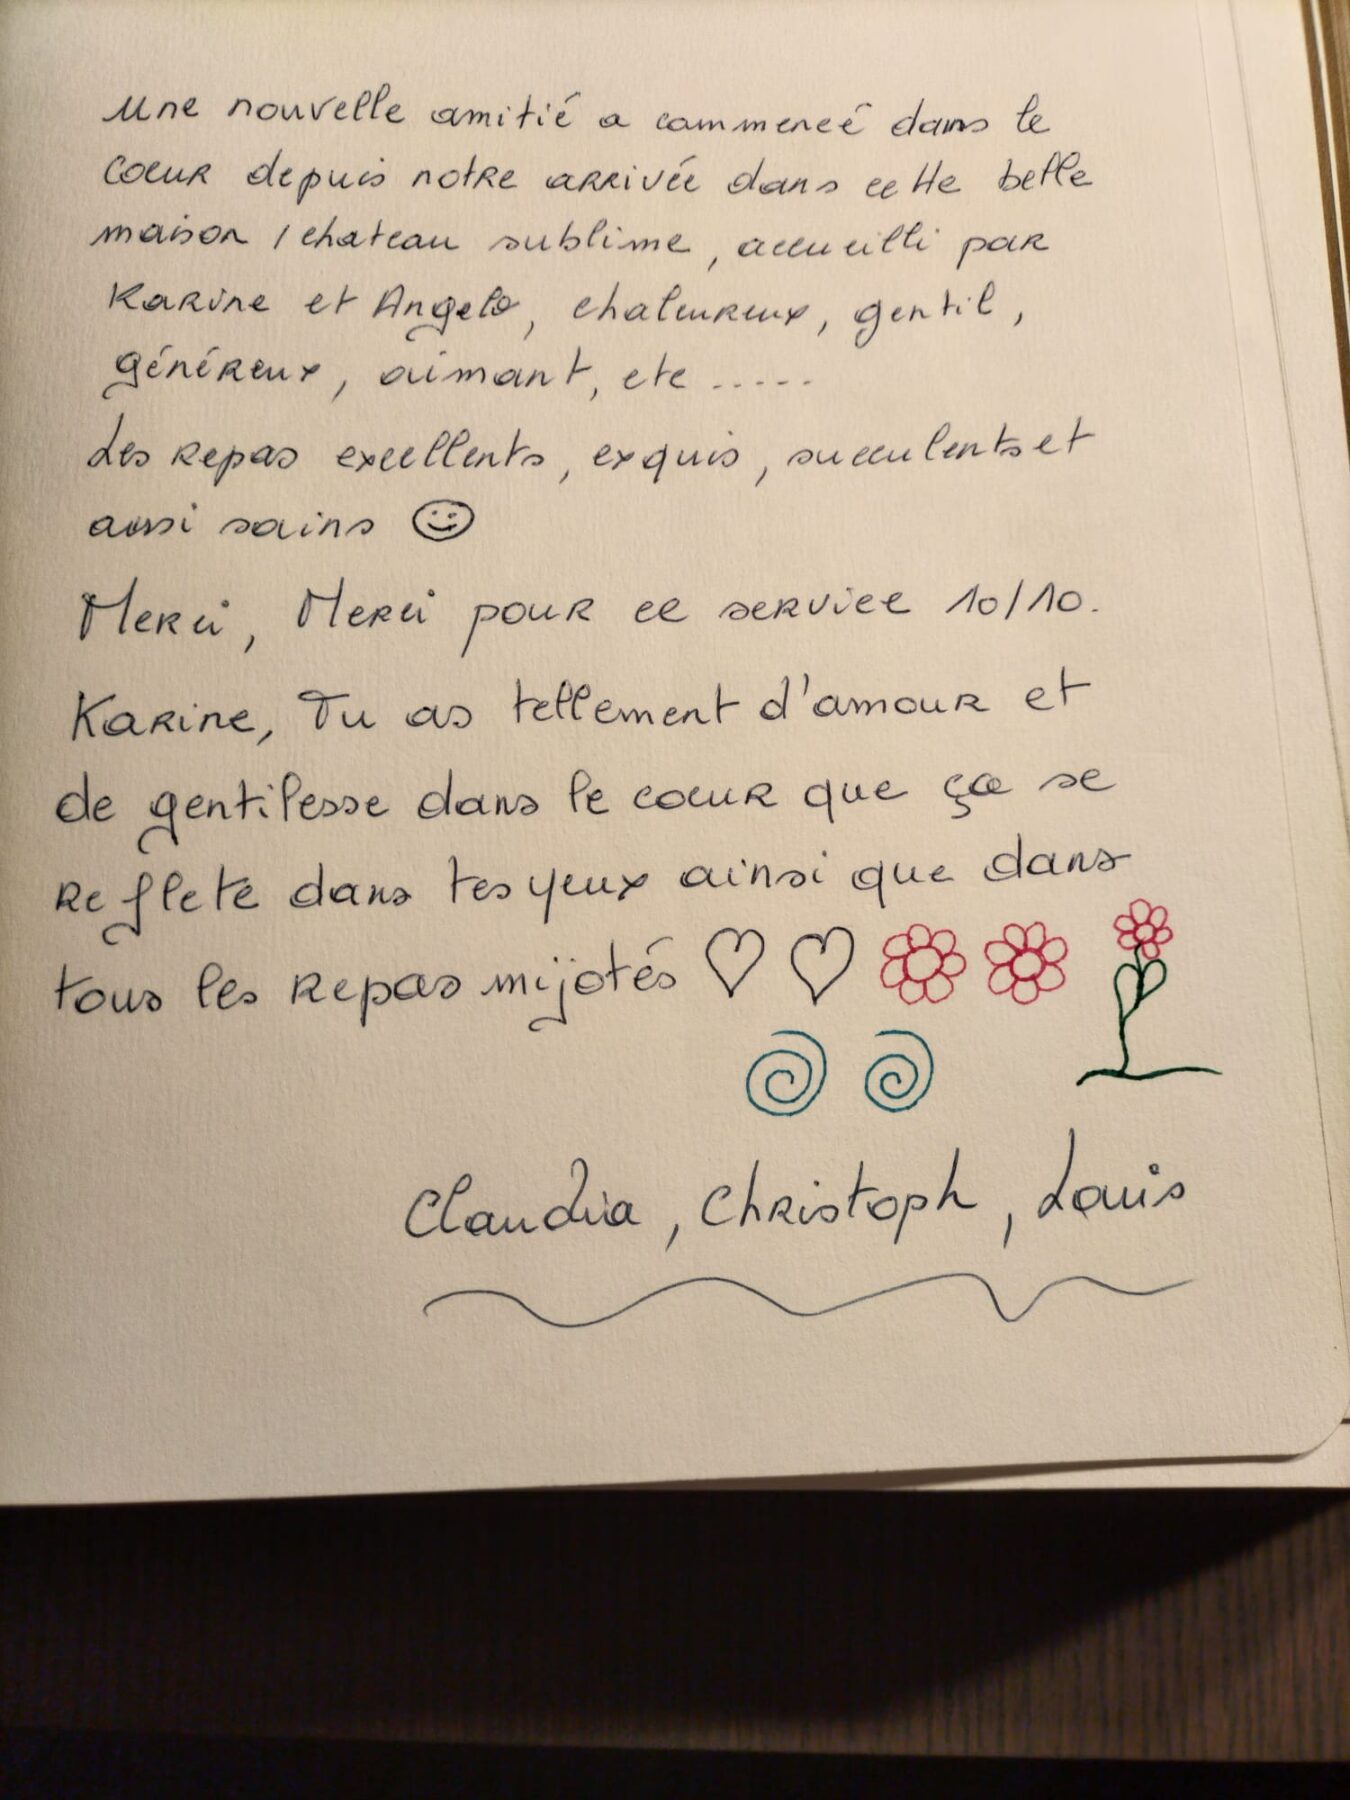 Une nouvelle amitié a commencé dans le
coeur depuis notre arrivée dans cette belle
maison / chateau sublime, accueilli par
Karine et Angelo, chaleureux, gentil,
généreux, aimant, etc .....
Les repas excellents, exquis, succulents et
aussi sains ☺
Merci, Merci pour ce service 10/10.
Karine, Tu as tellement d'amour et
de gentilesse dans le coeur que ça se
reflete dans tes yeux ainsi que dans
tous les repas mijotés ♡ ♡
Claudia, Christoph, Louis